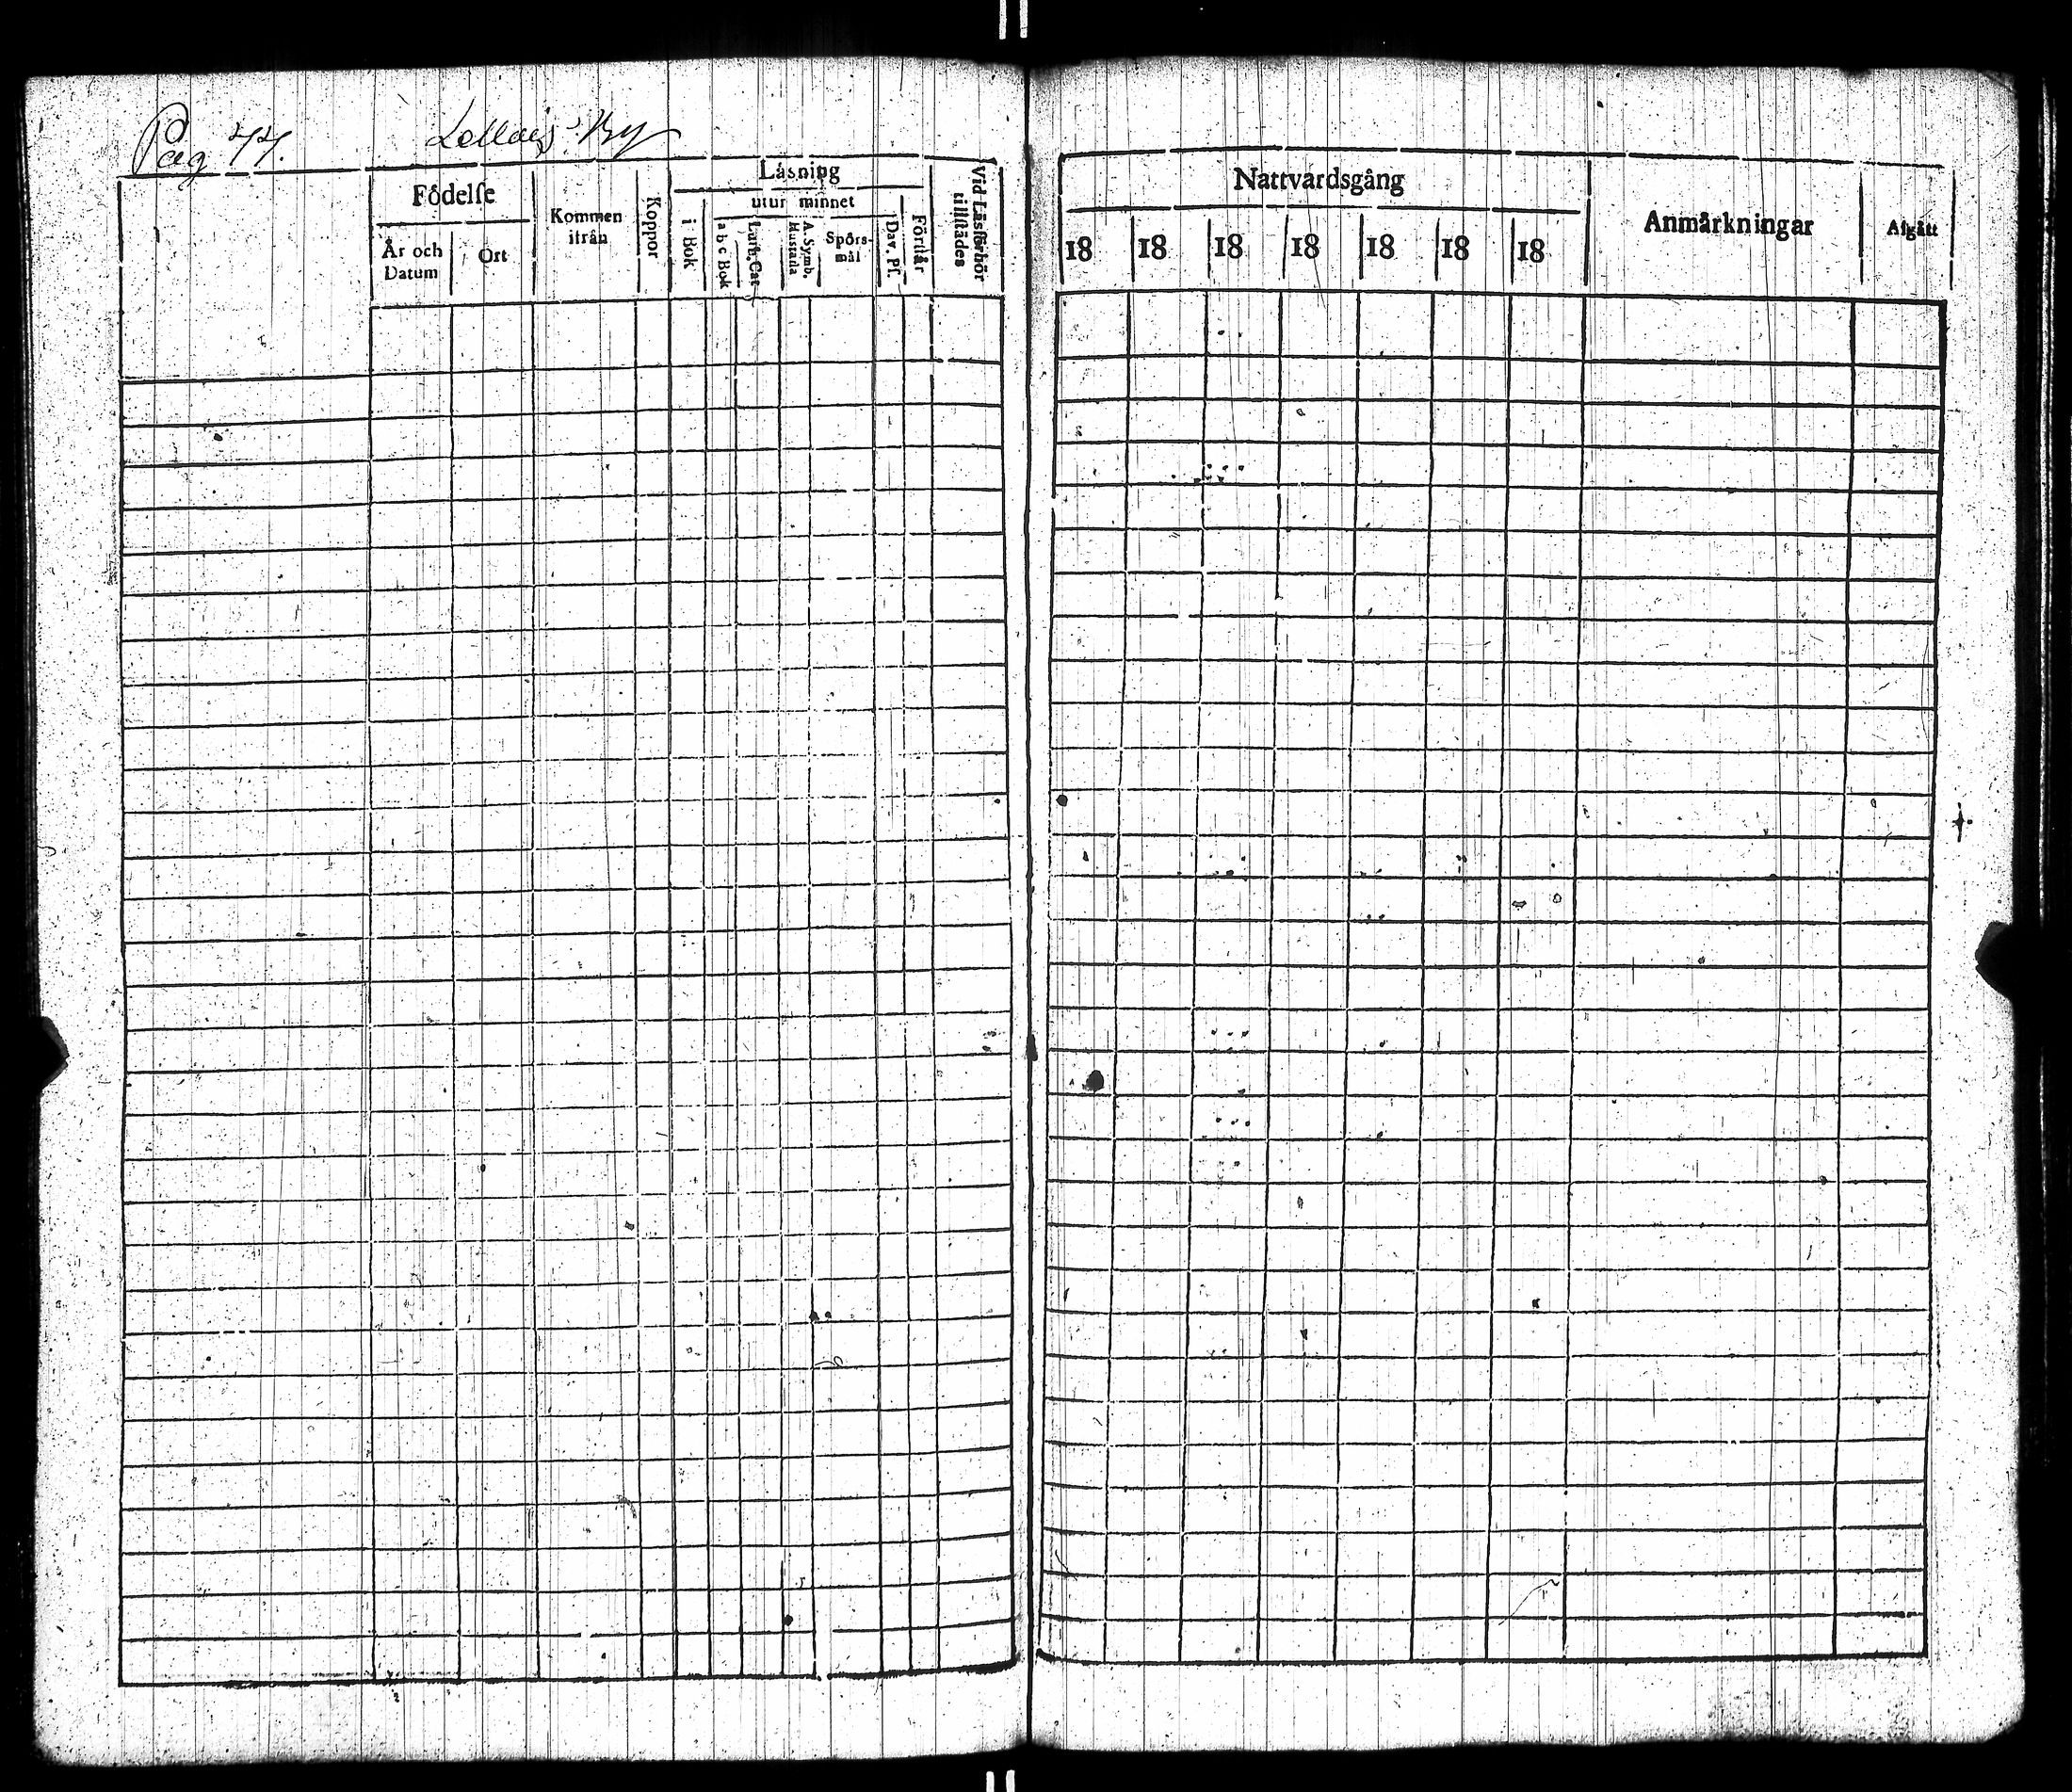 Pag 44.
By
Födelse
År och Datum
Ort
Kommen ifrån
Koppor
Läsning
utur minnet
i Bok
a b c Bok
Luth. Cat
A. Symb. Hustafla
Spörs-mål
Dav. Ps.
Förstår
Vid Läsförhör tillstädes
Nattvardsgång
18 18 18 18 18 18 18
Anmärkningar
Afgått